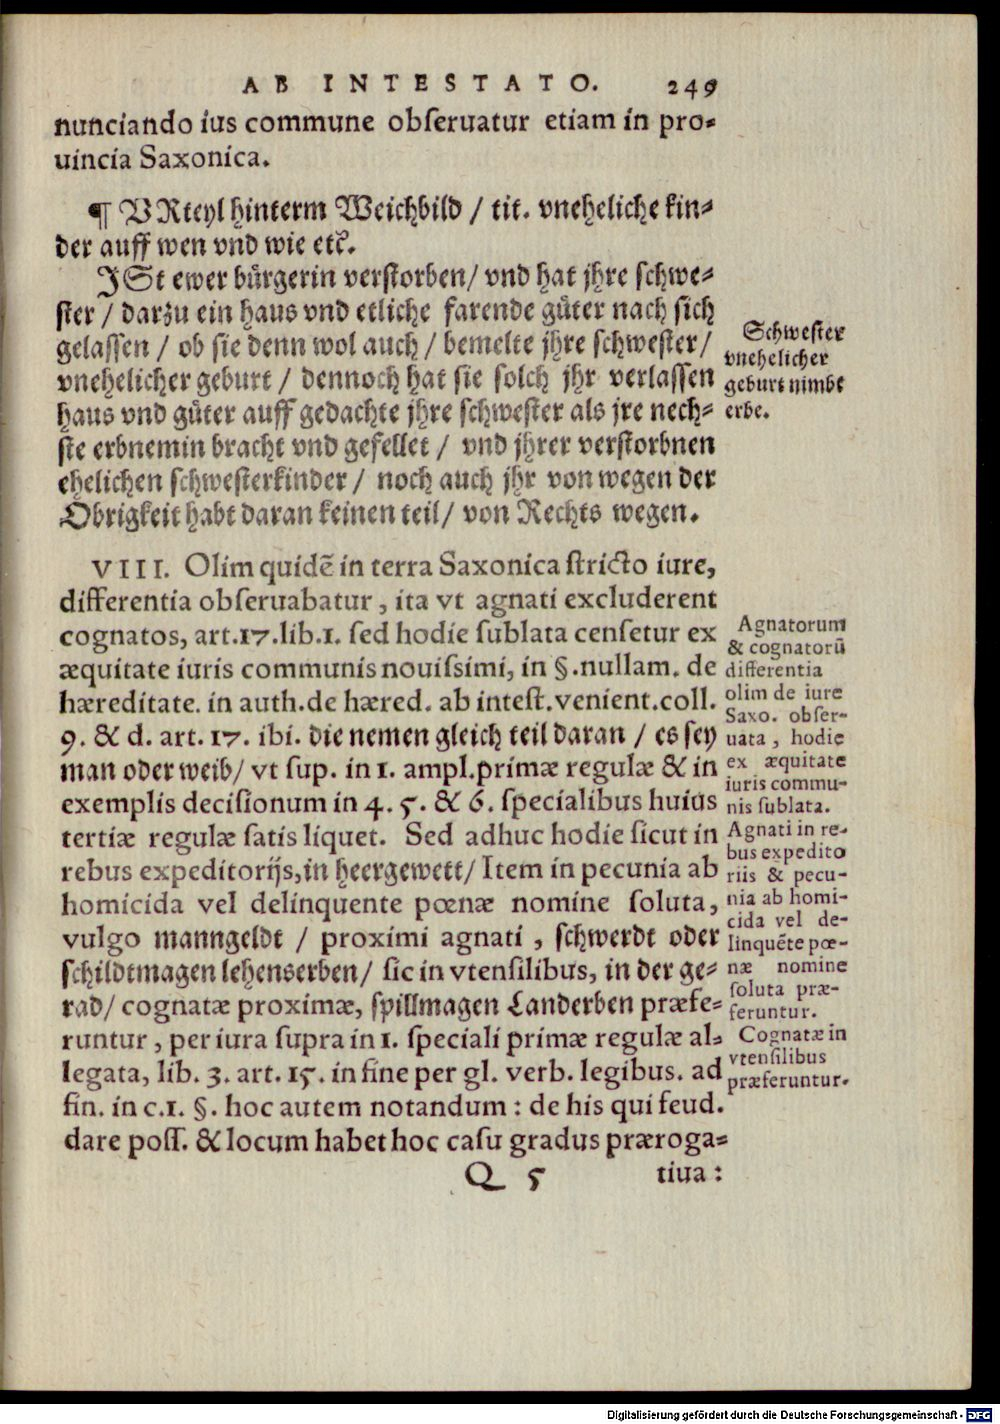 AB INTESTATO. 249
nunciando ius commune obseruatur etiam in pro-
uincia Saxonica.
¶ VRteyl hinterm Weichbild / tit. vneheliche kin-
der auff wen vnd wie etc.
JSt ewer bürgerin verstorben / vnd hat jhre schwe-
ster / darzu ein haus vnd etliche farende güter nach sich
gelassen / ob sie denn wol auch / bemelte jhre schwester /
vnehelicher geburt / dennoch hat sie solch jhr verlassen
haus vnd güter auff gedachte jhre schwester als jre nech-
ste erbnemin bracht vnd gefellet / vnd jhrer verstorbnen
ehelichen schwesterkinder / noch auch jhr von wegen der
Obrigkeit habt daran keinen teil / von Rechts wegen.
Schwester
vnehelicher
geburt nimbt
erbe.
VIII. Olim quidē in terra Saxonica stricto iure,
differentia obseruabatur, ita vt agnati excluderent
cognatos, art.17.lib.1. sed hodie sublata censetur ex
æquitate iuris communis nouissimi, in §.nullam. de
hæreditate. in auth.de hæred. ab intest.venient.coll.
9. & d. art. 17. ibi. die nemen gleich teil daran / es sey
man oder weib / vt sup. in 1. ampl.primæ regulæ & in
exemplis decisionum in 4. 5. & 6. specialibus huius
tertiæ regulæ satis liquet. Sed adhuc hodie sicut in
rebus expeditorijs, in heergewett / Item in pecunia ab
homicida vel delinquente pœnæ nomine soluta,
vulgo manngeldt / proximi agnati, schwerdt oder
schildtmagen lehenserben / sic in vtensilibus, in der ge-
rad / cognatæ proximæ, spillmagen Landerben præfe-
runtur, per iura supra in 1. speciali primæ regulæ al-
legata, lib. 3. art. 15. in fine per gl. verb. legibus. ad
fin. in c.1. §. hoc autem notandum : de his qui feud.
dare poss. & locum habet hoc casu gradus præroga-
Agnatorum
& cognatorū
differentia
olim de iure
Saxo. obser-
uata, hodie
ex æquitate
iuris commu-
nis sublata.
Agnati in re-
bus expedito
riis & pecu-
nia ab homi-
cida vel de-
linquēte pœ-
næ nomine
soluta præ-
feruntur.
Cognatæ in
vtensilibus
præferuntur.
Q 5 tiua :
Digitalisierung gefördert durch die Deutsche Forschungsgemeinschaft - DFG